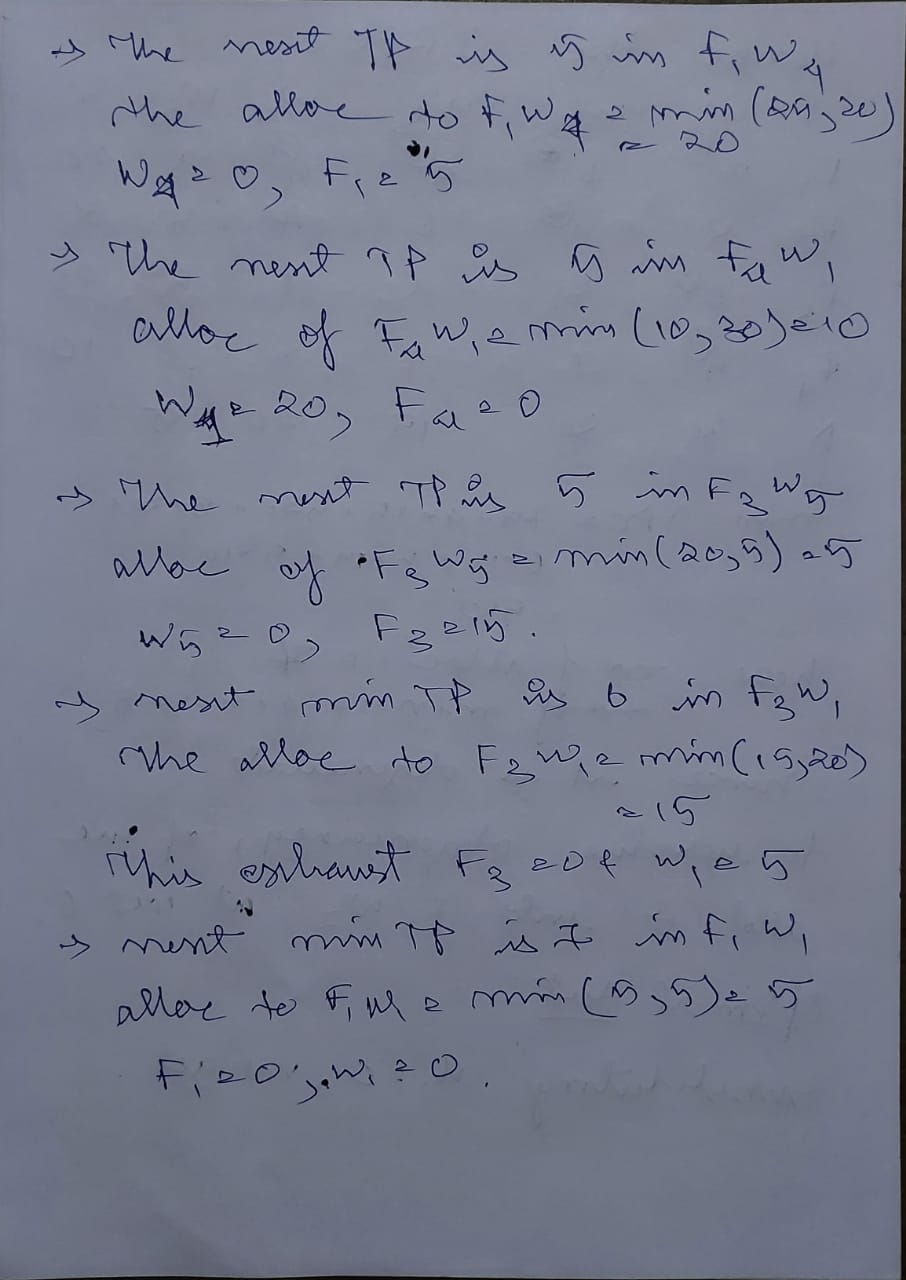 → The next TP is 5 in F₁W₄
the alloc to F₁W₄ = min (25, 20)
= 20
W₄ = 0, F₁ = 5
→ The next TP is 5 in F₄W₁
alloc of F₄W₁ = min (10, 30) = 10
W₁ = 20, F₄ = 0
→ The next TP is 5 in F₃W₅
alloc of F₃W₅ = min (20, 5) = 5
W₅ = 0, F₃ = 15.
→ next min TP is 6 in F₃W₁
The alloc to F₃W₁ = min (15, 20)
= 15
This exhaust F₃ = 0 & W₁ = 5
→ next min TP is 7 in F₁W₁
alloc to F₁W₁ = min (5, 5) = 5
F₁ = 0; W₁ = 0.